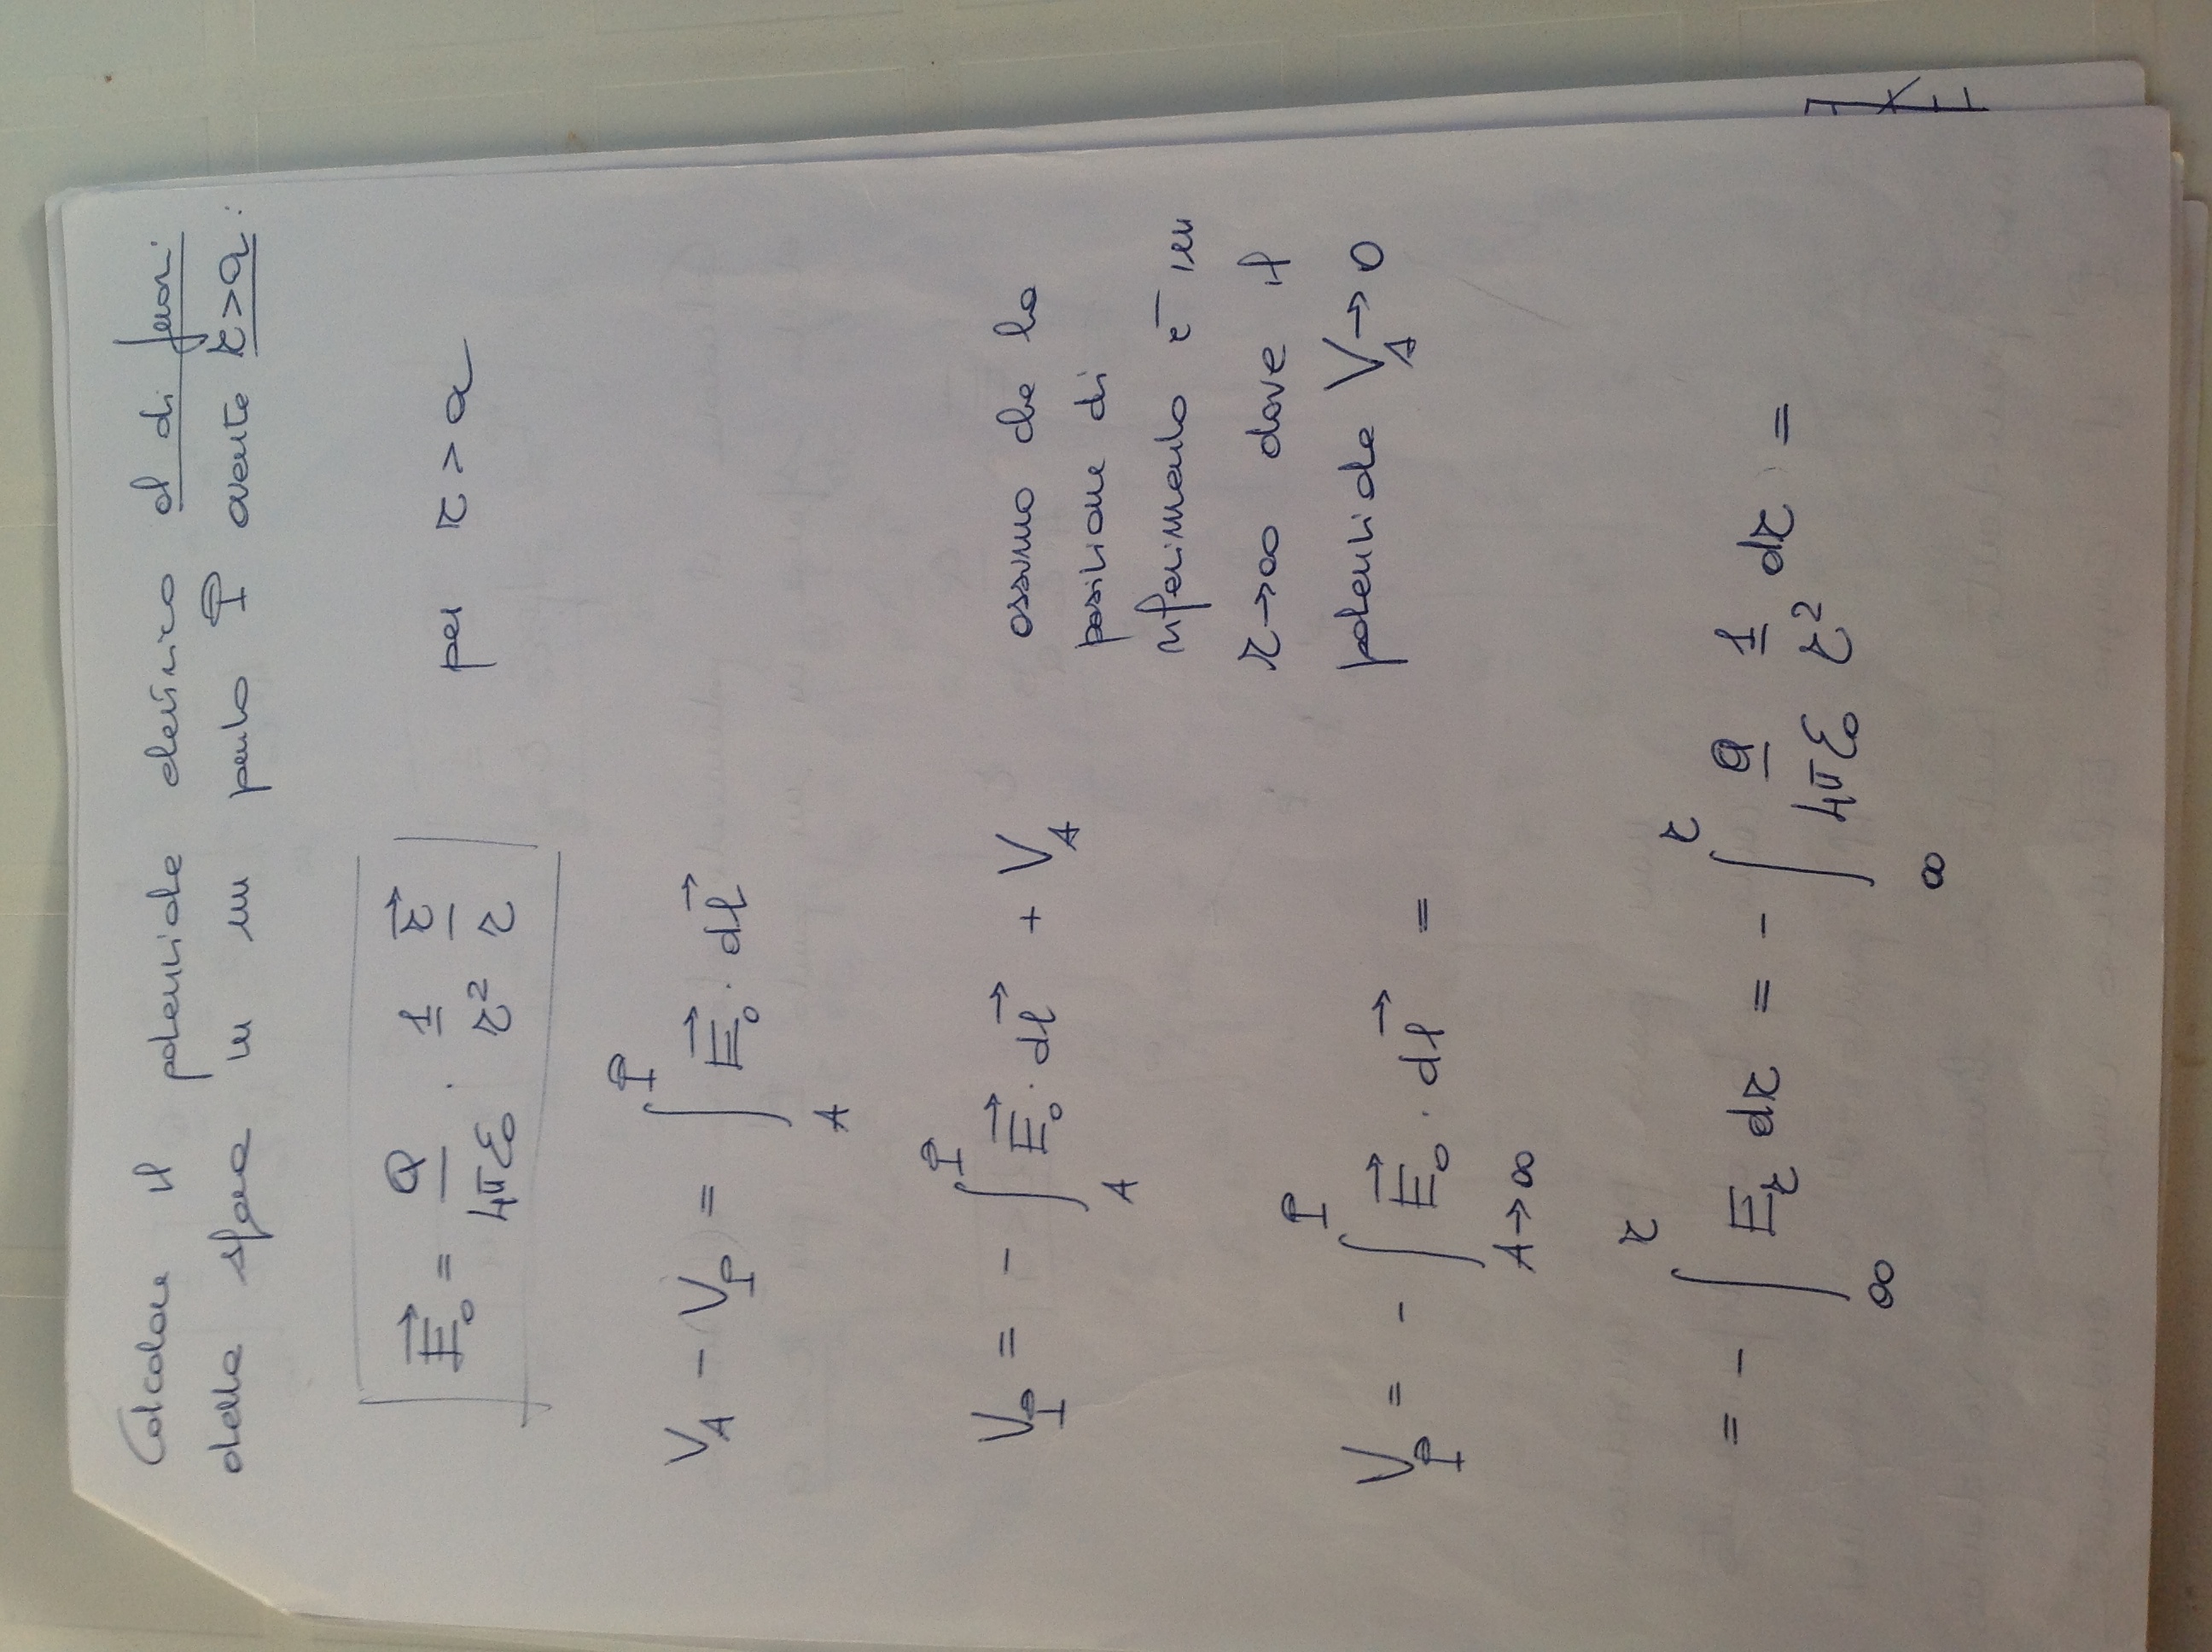 Calcolare il potenziale elettrico al di fuori
della sfera in un punto P avente r>a:
E⃗₀ = Q/4πε₀ · 1/r² r⃗/r per r > a
V_A - V_P = ∫_A^P E⃗₀ · dl⃗
V_P = - ∫_A^P E⃗₀ · dl⃗ + V_A
assumo che la
posizione di
riferimento è in
r→∞ dove il
potenziale V_A→0
V_P = - ∫_{A→∞}^P E⃗₀ · dl⃗ =
= - ∫_∞^r E_r dr = - ∫_∞^r Q/4πε₀ 1/r² dr =